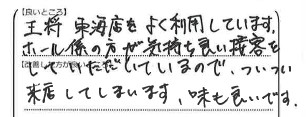 【良いところ】
王将 東海店をよく利用しています。
ホール係の方が気持ち良い接客を
していただいているので、ついつい
来店してしまいます、味も良いです。